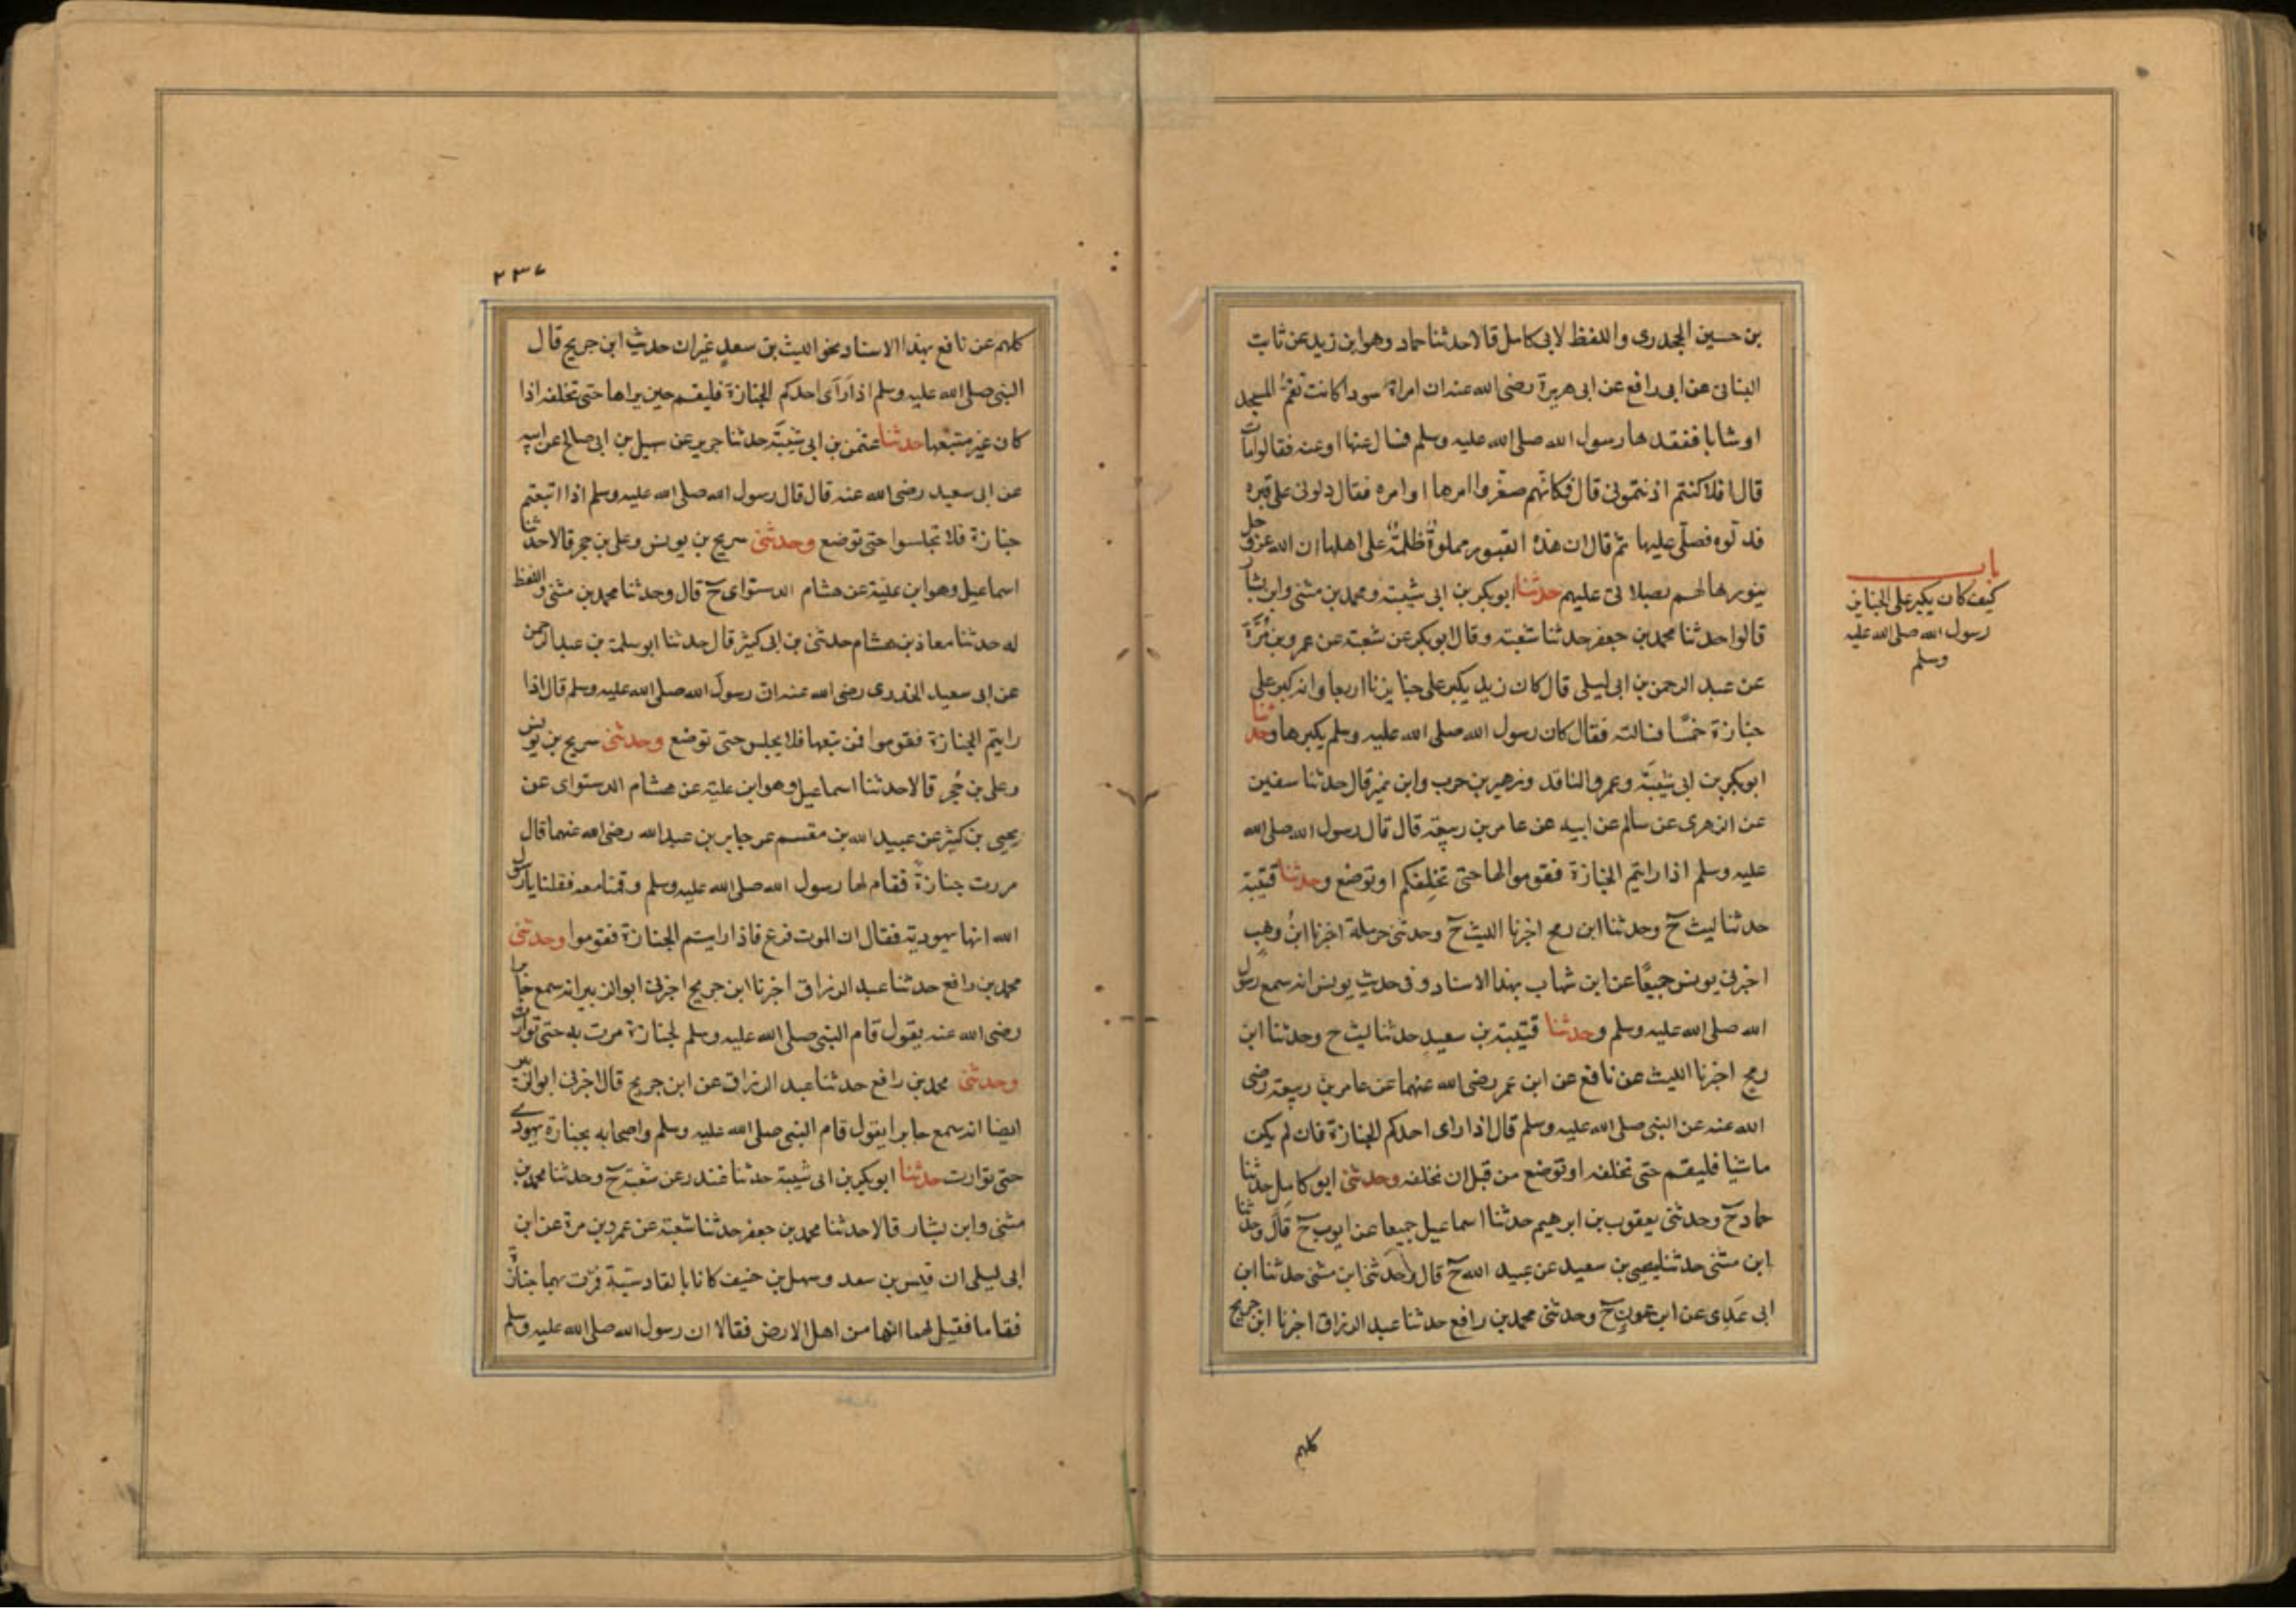 بن حسين الجحدرى واللفظ لابى كامل قالا حدثنا حماد وهو ابن زيد عن ثابت
البنانى عن ابى رافع عن ابى هريرة رضى الله عنه ان امراة سودا كانت تقمّ المسجد
او شابا ففقدها رسول الله صلى الله عليه وسلم فسال عنها او عنه فقالوا مات
قال افلا كنتم اذنتمونى قال فكانهم صغروا امرها او امره فقال دلونى على قبره
فدلوه فصلى عليها ثم قال ان هذه القبور مملوة ظلمة على اهلها ان الله عز وجل
ينورها لهم بصلاتى عليهم حدثنا ابوبكر بن ابى شيبة ومحمد بن مثنى وابن بشار
قالوا حدثنا محمد بن جعفر حدثنا شعبة وقال ابوبكر عن شعبة عن عمرو بن مُرَّة
عن عبد الرحمن بن ابى ليلى قال كان زيد يكبر على جنايزنا اربعا وانه كبر على
جنازة خمسًا فسالته فقال كان رسول الله صلى الله عليه وسلم يكبرها وحدثنا
ابوبكر بن ابى شيبة وعمرو الناقد وزهير بن حرب وابن نمير قال حدثنا سفين
عن الزهرى عن سالم عن ابيه عن عامر بن ربيعة قال قال رسول الله صلى الله
عليه وسلم اذا رايتم الجنازة فقوموا لها حتى تخلفكم او توضع وحدثنا قتيبة
حدثنا ليث ح وحدثنا ابن رمح اخبرنا الليث ح وحدثنى حرملة اخبرنا ابن وهب
اخبرنى يونس جميعًا عن ابن شهاب بهذا الاسناد وفى حديث يونس انه سمع رسول
الله صلى الله عليه وسلم وحدثنا قتيبة بن سعيد حدثنا ليث ح وحدثنا ابن
رمح اخبرنا الليث عن نافع عن ابن عمر رضى الله عنهما عن عامر بن ربيعة رضى
الله عنه عن النبى صلى الله عليه وسلم قال اذا راى احدكم الجنازة فان لم يكن
ماشيا فليقم حتى تخلفه او توضع من قبل ان تخلفه وحدثنى ابو كامل حدثنا
حماد ح وحدثنى يعقوب بن ابرهيم حدثنا اسماعيل جميعا عن ايوب ح قال وحدثنا
ابن مثنى حدثنا يحيى بن سعيد عن عبيد الله ح قال وحدثنى ابن مثنى حدثنا ابن
ابى عدى عن ابن عون ح وحدثنى محمد بن رافع حدثنا عبد الرزاق اخبرنا ابن جريج
باب
كيف كان يكبر على الجنايز
رسول الله صلى الله عليه
وسلم
كلهم
٢٣٧
كلهم عن نافع بهذا الاسناد نحو الليث بن سعد غير ان حديث ابن جريج قال
النبى صلى الله عليه وسلم اذا رَاَى احدكم الجنازة فليقم حين يراها حتى تخلفه اذا
كان غير متبعها حدثنا عثمن بن ابى شيبة حدثنا جرير عن سهيل بن ابى صالح عن ابيه
عن ابى سعيد رضى الله عنه قال قال رسول الله صلى الله عليه وسلم اذا اتبعتم
جنازة فلا تجلسوا حتى توضع وحدثنى سريج بن يونس وعلى بن حجر قالا حدثنا
اسماعيل وهو ابن علية عن هشام الدستواى ح قال وحدثنا محمد بن مثنى واللفظ
له حدثنا معاذ بن هشام حدثنى بن ابى كثير قال حدثنا ابو سلمة بن عبد الرحمن
عن ابى سعيد الخدرى رضى الله عنه ان رسول الله صلى الله عليه وسلم قال اذا
رايتم الجنازة فقوموا فمن تبعها فلا يجلس حتى توضع وحدثنى سريج بن يونس
وعلى بن حُجر قالا حدثنا اسماعيل وهو ابن علية عن هشام الدستواى عن
يحيى بن كثير عن عبيد الله بن مقسم عن جابر بن عبد الله رضى الله عنهما قال
مررت جنازة فقام لها رسول الله صلى الله عليه وسلم وقمنا معه فقلنا يا رسول
الله انها يهودية فقال ان الموت فزع فاذا رايتم الجنازة فقوموا وحدثنى
محمد بن رافع حدثنا عبد الرزاق اخبرنا ابن جريج اخبرنى ابو الزبير انه سمع جابرا
رضى الله عنه يقول قام النبى صلى الله عليه وسلم لجنازة مرت به حتى توارت
وحدثنى محمد بن رافع حدثنا عبد الرزاق عن ابن جريج قال اخبرنى ابو الزبير
ايضا انه سمع جابرا يقول قام النبى صلى الله عليه وسلم واصحابه بجنازة يهودى
حتى توارت حدثنا ابوبكر بن ابى شيبة حدثنا غندر عن شعبة ح وحدثنا محمد بن
مثنى وابن بشار قالا حدثنا محمد بن جعفر حدثنا شعبة عن عمرو بن مرة عن ابن
ابى ليلى ان قيس بن سعد وسهل بن حنيف كانا بالقادسية فمرت بهما جنازة
فقاما فقيل لهما انها من اهل الارض فقالا ان رسول الله صلى الله عليه وسلم